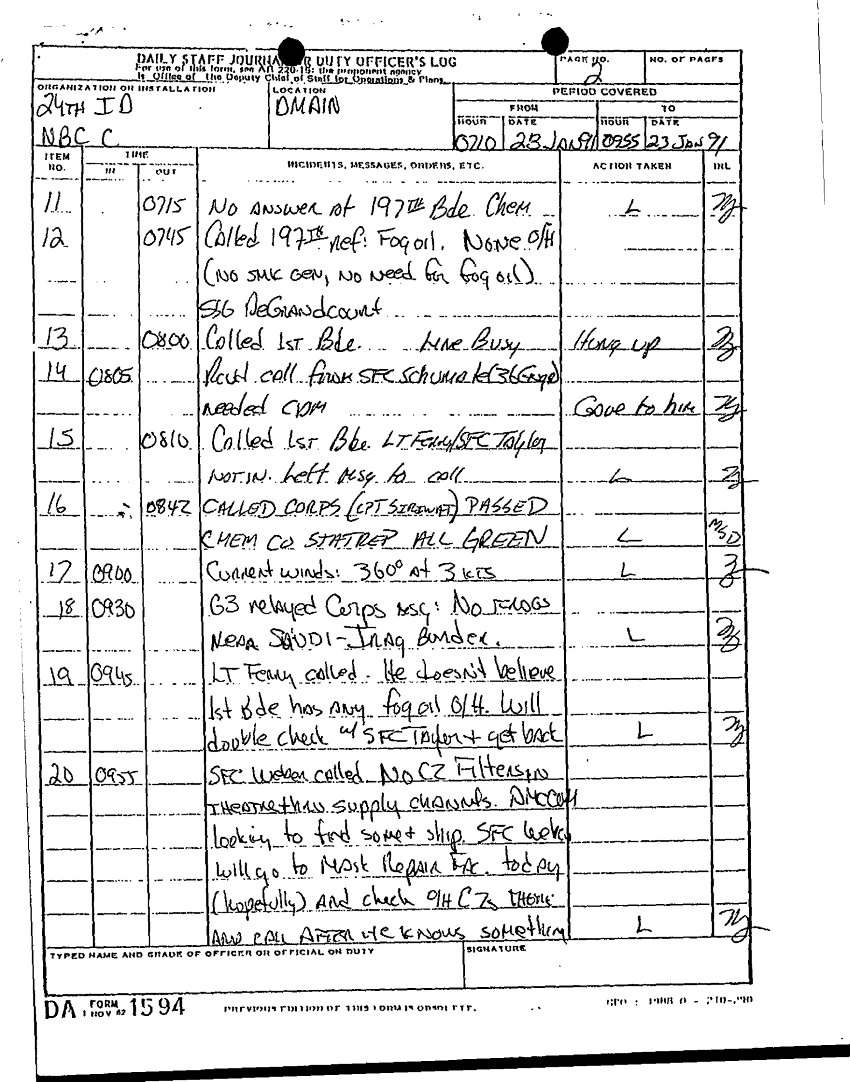 DAILY STAFF JOURNAL OR DUTY OFFICER'S LOG
PAGE NO. 2
NO. OF PAGES
For use of this form, see AR 220-15; the proponent agency
is Office of The Deputy Chief of Staff for Operations & Plans.
ORGANIZATION OR INSTALLATION
LOCATION
PERIOD COVERED
24TH ID
NBC C
DMAIN
FROM
TO
HOUR DATE
HOUR DATE
0710 23 JAN 91 0955 23 JAN 91
ITEM NO.
TIME
IN OUT
INCIDENTS, MESSAGES, ORDERS, ETC.
ACTION TAKEN
INL
11 0715 No answer at 197th Bde Chem L
12 0745 Called 197th ref: Fog oil. None O/H
(No SMK GEN, No Need for fog oil)
SSG DeGrandcourt
13 0800 Called 1st Bde. Line Busy Hung up
14 0805 Rcvd call from SFC
needed CDM Gave to him
15 0810 Called 1st Bde LT Ferry/SFC Taylor
NOT IN. Left msg to call L
16 0842 CALLED CORPS (CPT) PASSED
CHEM CO STATREP ALL GREEN L MSD
17 0900 Current winds: 360° at 3 KTS L
18 0930 G3 relayed Corps msg: No FROGS
Near SAUDI-Iraq Border. L
19 0945 LT Ferry called. He doesn't believe
1st Bde has any fog oil O/H. Will
double check w/ SFC Taylor + get back L
20 0955 SFC Weber called No C2 Filters in
Theatre thru supply channels. AMCCOM
looking to find some + ship. SFC Weber
will go to Mask Repair Fac. today
(hopefully) and check O/H C2s there
and call after he knows something L
TYPED NAME AND GRADE OF OFFICER OR OFFICIAL ON DUTY
SIGNATURE
DA FORM 1594
1 NOV 62
PREVIOUS EDITION OF THIS FORM IS OBSOLETE.